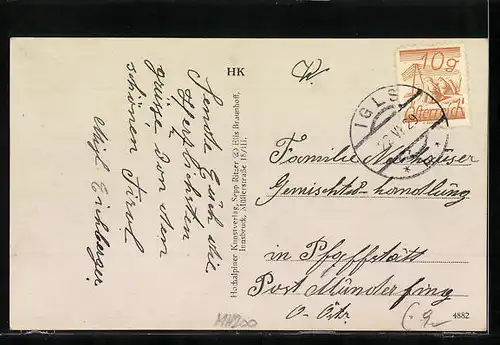 HK
Sende Euch die
Herzlichsten
Grüsse von dem
schönen Tirol
Hochalpiner Kunstverlag, Sepp Ritzer (Z) Elis Braunhoff,
Innsbruck, Müllerstraße 18/III.
W.
10g
Österreich
IGLS
Familie
Gemischts-handlung
in Pfaffstätt
Post Munderfing
O-Östr
4882
MH200